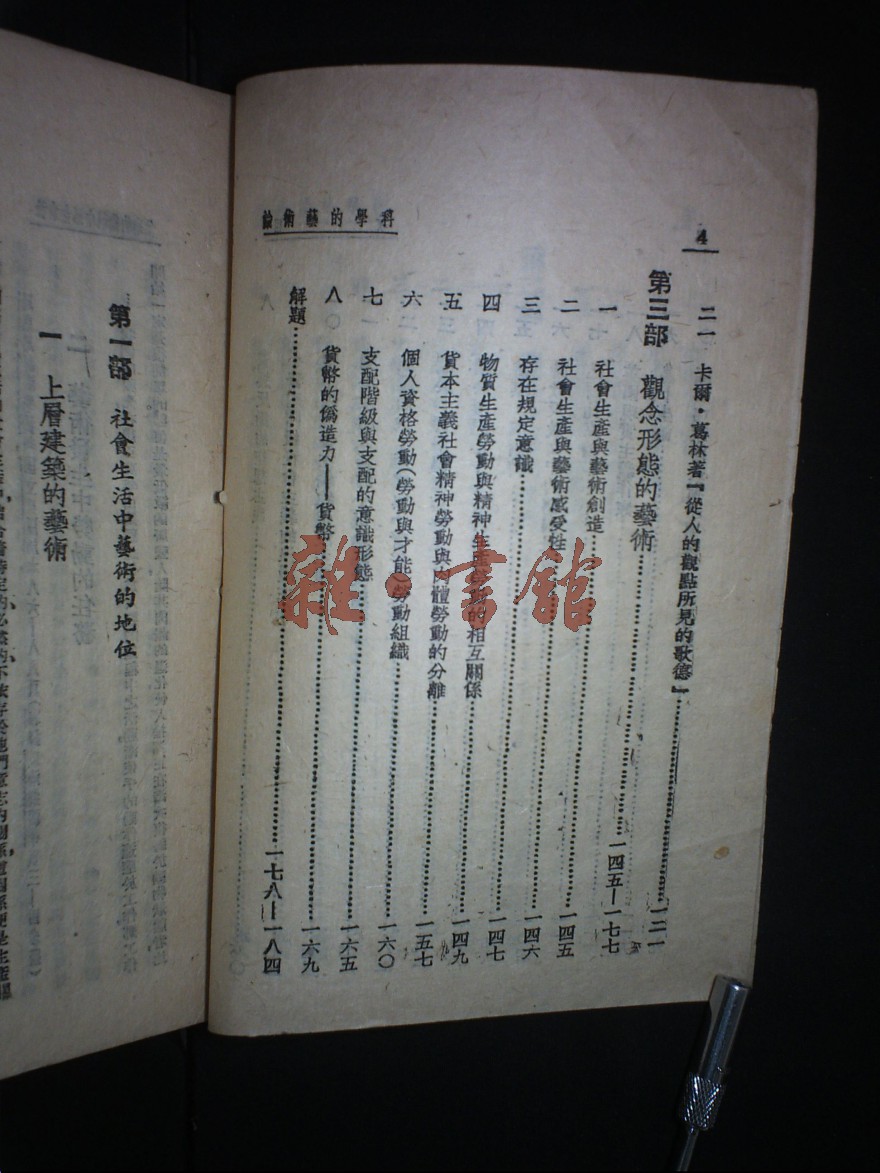 4
科學的藝術論
二一 卡爾·葛林著『從人的觀點所見的歌德』……一二一
第三部 觀念形態的藝術……一四五—一七七
一 社會生產與藝術創造……一四五
二 社會生產與藝術感受性……一四六
三 存在規定意識……一四七
四 物質生產勞動與精神生產勞動的相互關係……一四九
五 資本主義社會精神勞動與肉體勞動的分離……一五七
六 個人資格勞動(勞動與才能)勞動組織……一六〇
七 支配階級與支配的意識形態……一六五
八 貨幣的僞造力——貨幣……一六九
解題……一七八—一八四
第一部 社會生活中藝術的地位
一 上層建築的藝術
特定的必然的不依存於他們意志的關係,這關係便是生產關
雜·書館